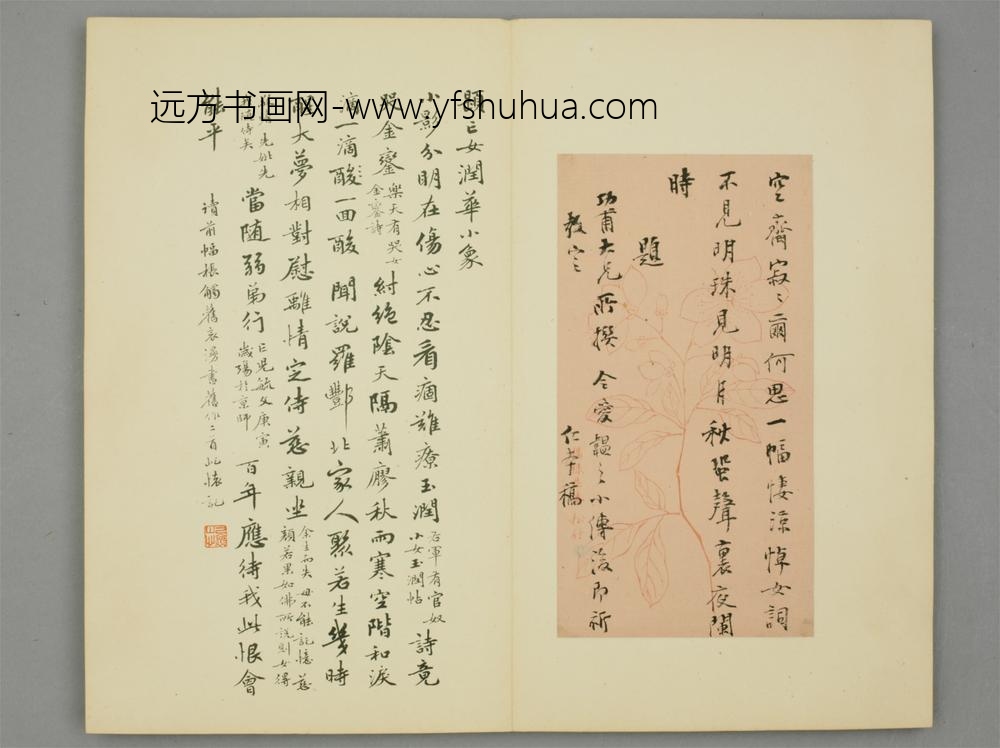 远方书画网-www.yfshuhua.com
空齋寂〻爾何思一幅悽涼悼女詞
不見明珠見明月秋蛩聲裏夜闌
時
題
功甫大兄所撰令愛韞〻小傳後即祈
教定
仁 稿
題亡女潤華小象
小影分明在傷心不忍看痼難療玉潤
右軍有官奴
小女玉潤帖
詩竟
哭金鑾
樂天有哭女
金鑾詩
紂絕陰天隔蕭廖秋雨寒空階和淚
滴一滴酸一面酸聞說羅酆北家人聚若生幾時
醒大夢相對慰離情定侍慈親坐
余生而失母不能記憶慈
顏若果如佛所說則女得
先妣先
侍矣
當隨弱弟行
亡兒毓文庚寅
歲殤於京師
百年應待我此恨會
能平
讀前幅棖觸舊哀漫書舊作二首此懷記